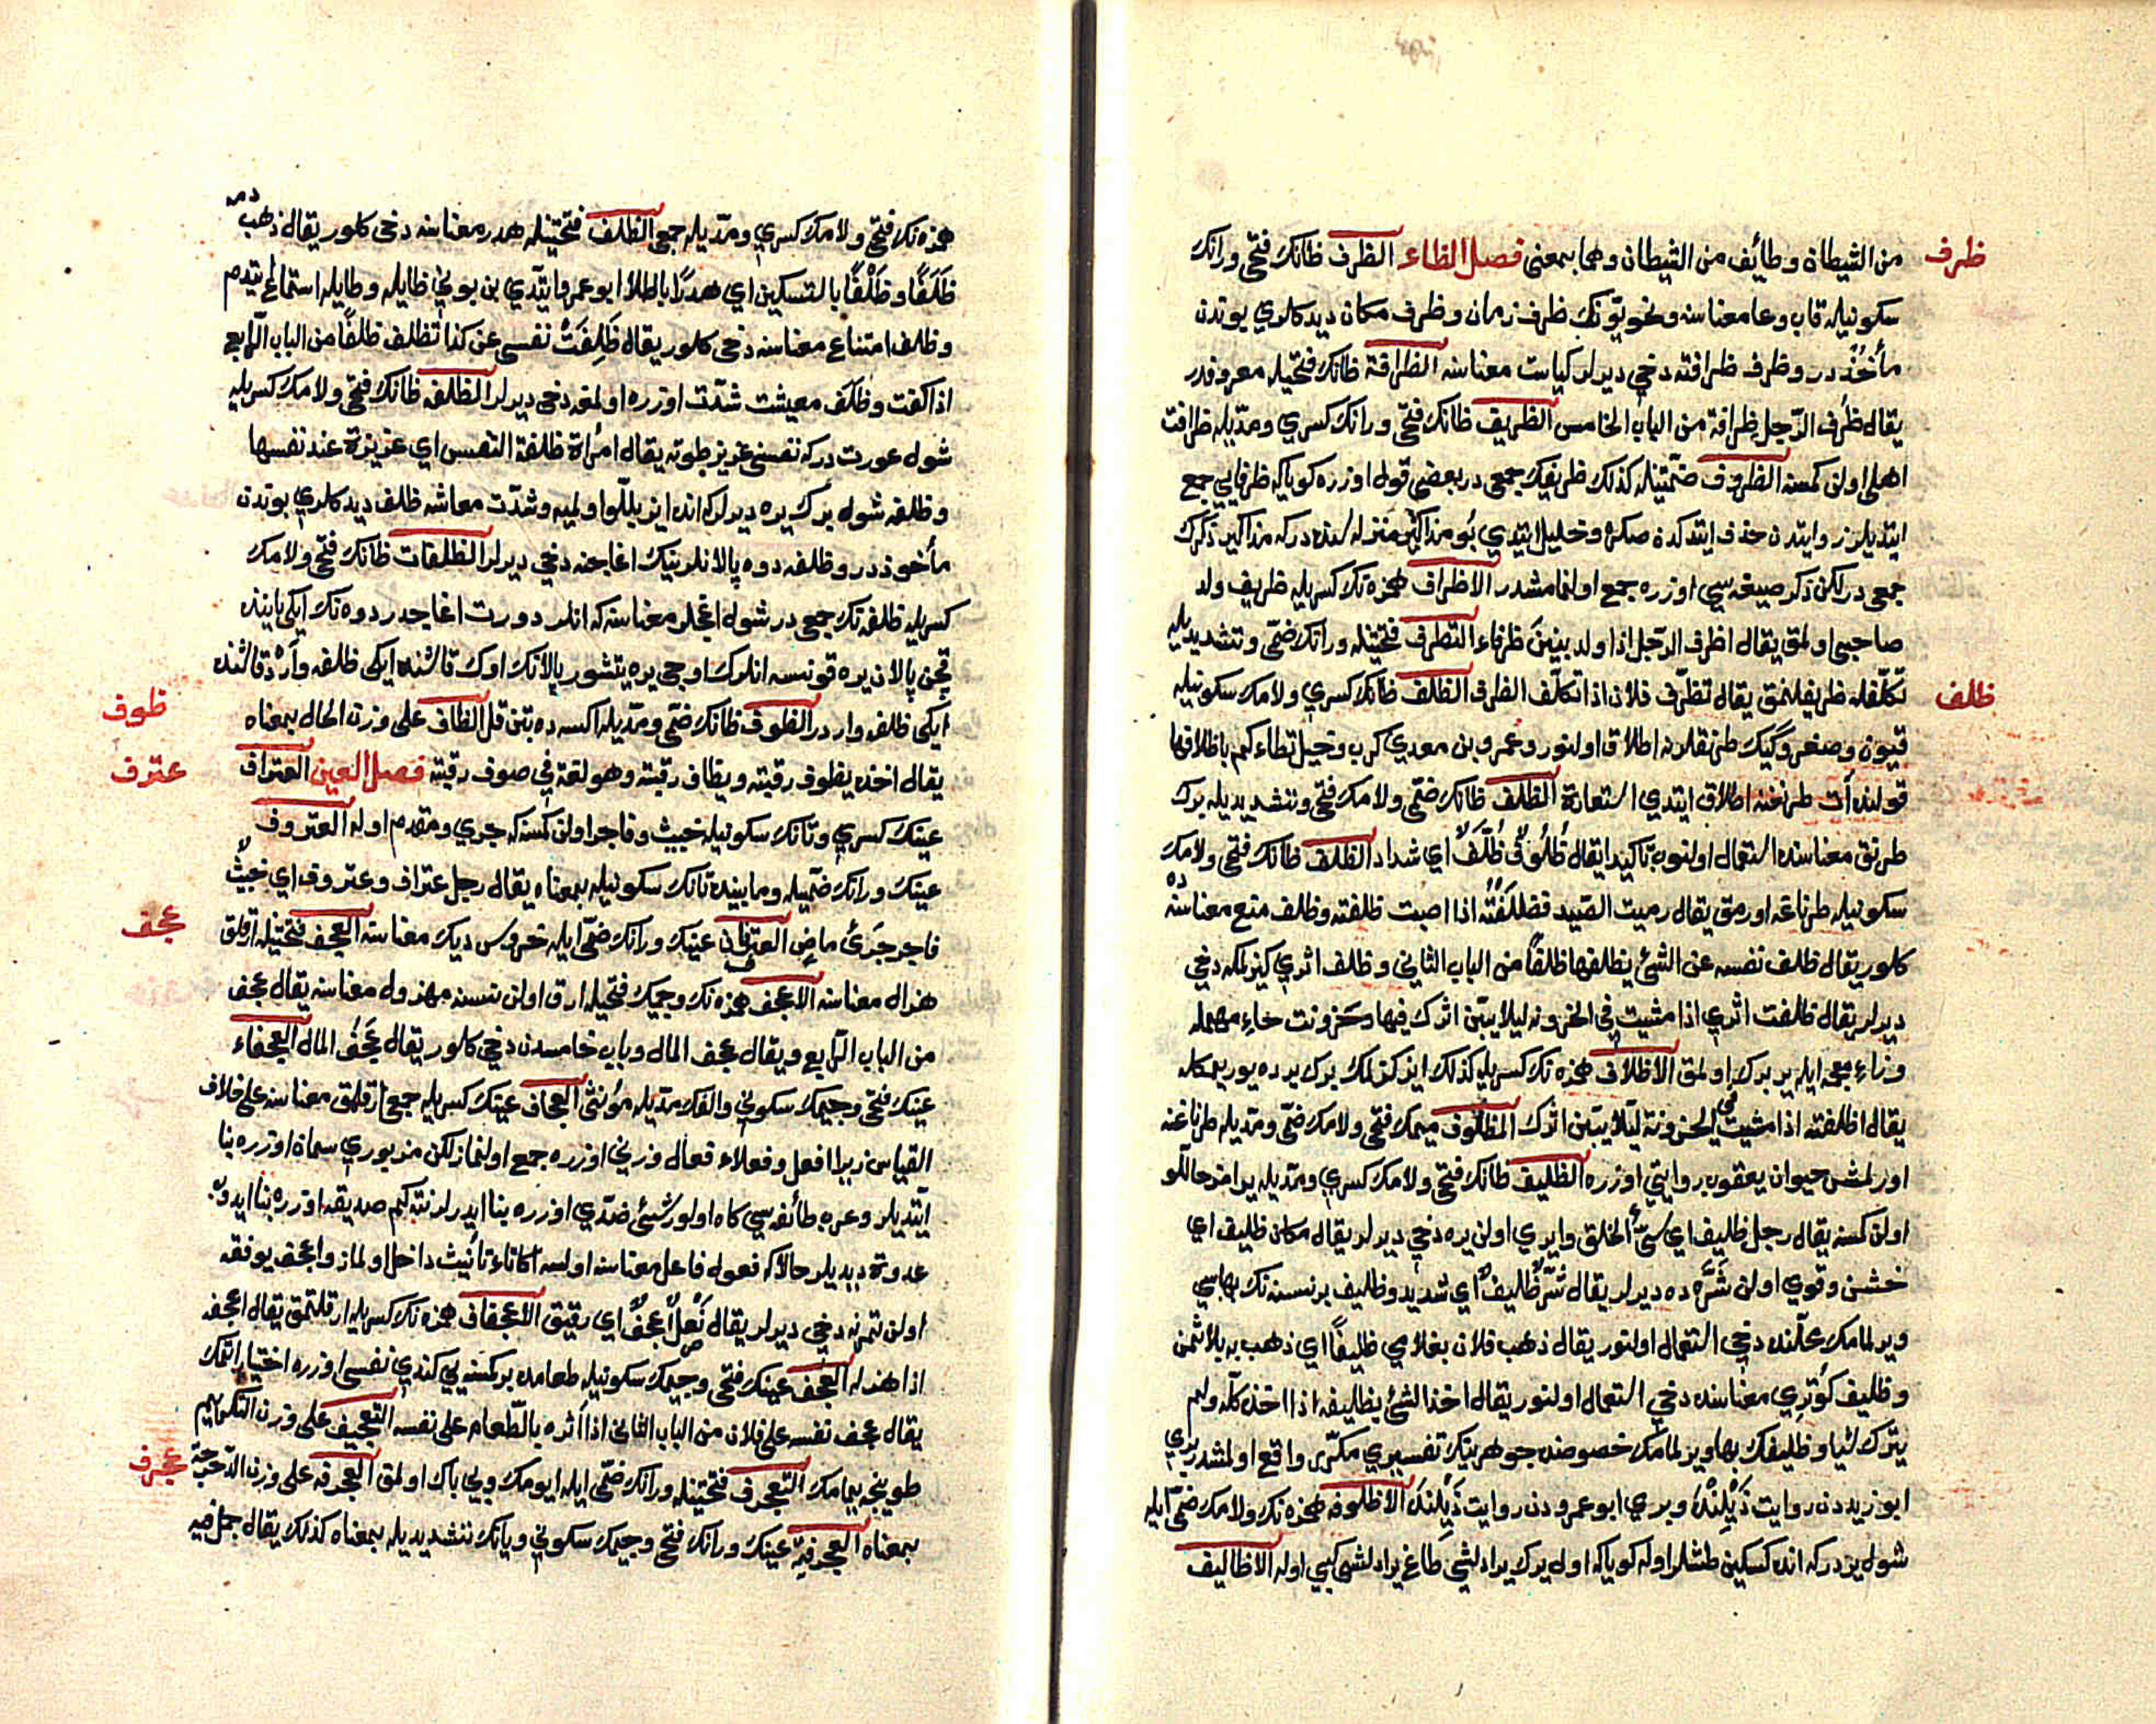 ظرف
من الشيطان وطائف من الشيطان وهما بمعنى فصل الظاء الظرف ظانك فتحى ورانك
سكونيله قاب وعا معناسنه ونحويونك ظرف زمان وظرف مكان ديدكلرى بوندن
مأخوذدر وظرف ظرافته دخى ديرلر كياست معناسنه الظرافة ظانك فتحيله معروفدر
يقال ظرف الرّجل ظرافة من الباب الخامس الظريف ظانك فتحى ورانك كسرى ومدّيله ظرافت
اهلى اولن كمسنه الظروف ضمّتينله كذلك ظريفك جمعى در بعضى قول اوزره كويا كه ظرفايى جمع
ايتديلر زوايتدن حذف ايتدكدن صكره وخليل ايتدى بو مذاكير منزله سنده دركه مذاكير ذكرك
جمعى در لكن ذكر صيغه سى اوزره جمع اولنمامشدر الاظراف همزه نك كسريله ظريف ولد
صاحبى اولمق يقال اظرف الرّجل اذا ولد بنين ظرفاء التظرف فتحتينله ورانك ضمّى وتشديديله
ظلف
تكلّفله ظريفلنمق يقال تظرّف فلان اذا تكلّف الظرف الظلف ظانك كسرى ولامك سكونيله
قيون وصغر وكيك طرنقلرنه اطلاق اولنور وعمرو بن معدى كرب وخيل تطاءكم باظلافها
قولنده آت طرنغنه اطلاق ايتدى استعارة الظلف ظانك ضمّى ولامك فتحى وتشديديله برك
طرنق معناسنده استعمال اولنوب تاكيدا يقال ظُلُوفٌ ظُلَّفٌ اى شداد الظلف ظانك فتحى ولامك
سكونيله طرناغه اورمق يقال رميت الصّيد فظلفته اذا اصبت ظلفته وظلف منع معناسنه ده
كلور يقال ظلف نفسه عن الشئ يظلفها ظلفا من الباب الثانى وظلف اثرى كيزلمكه دخى
ديرلر يقال ظلفت اثرى اذا مشيت فى الحزونه ليلا يتبيّن اثرك فيها وحزونت حاء مهمله
وزاء معجمه ايله ير برك اولمق الاظلاف همزه نك كسريله كذلك ايز كزلمك برك يرده يوريمكله
يقال اظلفته اذا مشيت فى الحزونة ليلا يتبيّن اثرك المظلوف ميمك فتحى ولامك ضمّى ومدّيله طرناغنه
اورلمش حيوان يعقوب روايتى اوزره الظليف ظانك فتحى ولامك كسرى ومدّيله يرامز حاللّو
اولن كمسنه يقال رجل ظليف اى سئ الخلق وايرى اولن يره دخى ديرلر يقال مكان ظليف اى
خشن وقوى اولن شرّه ده ديرلر يقال شرّ ظليف اى شديد وظليف بر نسنه نك بهاسى
ويرلمامك محلّنده دخى استعمال اولنور يقال ذهب فلان بغلامى ظليفا اى ذهب به بلا ثمن
وظليف كوترى معناسنده دخى استعمال اولنور يقال اخذ الشئ بظليفه اذا اخذه كلّه ولم
يترك شيا وظليفك بها ويرلمامك خصوصنده جوهرينك تفسيرى مكرّر واقع اولمشدر برى
ابو زيددن روايت ذيلنده وبرى ابو عمرودن روايت ذيلنده الاظلوفه همزه نك ولامك ضمّى ايله
شول يردركه انده كسكين طشلر اوله كويا كه اول يرك يرادلشى طاغ يرادلشى كبى اوله الاظاليف
همزه نك فتحى ولامك كسرى ومدّيله جمعى الظلف فتحتينله هدر معناسنه دخى كلور يقال ذهب دمه
ظَلَفًا وظَلْفًا بالتسكين اى هدرًا باطلا ابو عمرو ايتدى بن بونى ظايله وطايله استماع ايتدم
وظلف امتناع معناسنه دخى كلور يقال ظَلِفَتْ نفسى عن كذا تظلف ظلفًا من الباب الرّابع
اذا كفت وظلف معيشت شدّت اوزره اولمغه دخى ديرلر الظلفه ظانك فتحى ولامك كسريله
شول عورت دركه نفسنى عزيز طوته يقال امرأة ظلفة النّفس اى عزيزة عند نفسها
وظلفه شول برك يره ديرلركه انده ايز بللّو اولميه وشدّت معاشه ظلف ديدكلرى بوندن
مأخوذدر وظلفه دوه پالانلرينك اغاجنه دخى ديرلر الظلفات ظانك فتحى ولامك
كسريله ظلفه نك جمعى در شول اغجلر معناسنه كه انلر دورت اغاجدر دوه نك ايكى ياننده
قچن پالان يره قونسه انلرك اوجى يره يتشور پالانك اوك قاشنده ايكى ظلفه وآرد قاشنده
ظوف
ايكى ظلفه واردر الظوف ظانك ضمّى ومدّيله اكسه ده بتن قل الظاف على وزن الحال بمعناه
عترف
يقال اخذه بظوف رقبته وبظاف رقبته وهو لغة فى صوف رقبته فصل العين العتراف
عينك كسرى وتانك سكونيله خبيث وفاجر اولن كمسنه كه جرى ومقدم اوله العتروف
عينك ورانك ضمّيله ومابينده تانك سكونيله بمعناه يقال رجل عتراف وعتروف اى خبيث
عجف
فاجر جرئ ماض العترفان عينك ورانك ضمّى ايله خروس ديك معناسنه العجف فتحتينله ارقلق
هزال معناسنه الاعجف همزه نك وجيمك فتحيله ارق اولن نسنه مهزول معناسنه يقال عجف
من الباب الرّابع ويقال عجف المال وباب خامسدن دخى كلور يقال عَجُفَ المال العجفاء
عينك فتحى وجيمك سكونى والفك مدّيله مؤنثى العجاف عينك كسريله جمعى ارقلق معناسنه على خلاف
القياس زيرا افعل وفعلاء فعال وزنى اوزره جمع اولنماز لكن مزبورى سمان اوزره بنا
ايتديلر وعرب طائفه سى كاه اولور شئى ضدّى اوزره بنا ايدرلر نته كيم صديقه اوزره بنا ايدوب
عدوة ديديلر حالا كه فعول فاعل معناسنه اولسه اكا تاء تأنيث داخل اولماز واعجف يوفقه
اولن تمرنه دخى ديرلر يقال نَصْلٌ اعجفُ اى رقيق الاعجاف همزه نك كسريله ارقلتمق يقال اعجفه
اذا هزله العجف عينك فتحى وجيمك سكونيله طعامده بر كمسنه يى كندى نفسى اوزره اختيار اتمك
يقال عجف نفسه على فلان من الباب الثانى اذا آثره بالطّعام على نفسه التعجيف على وزن التكريم
عجرف
طوينجه ييمامك التعجرف فتحتينله ورانك ضمّى ايله ايومك وبى باك اولمق العجرفه على وزن الدّحرجه
بمعناه العجرفية عينك ورانك فتحى وجيمك سكونى ويانك تشديديله بمعناه كذلك يقال جمل فيه